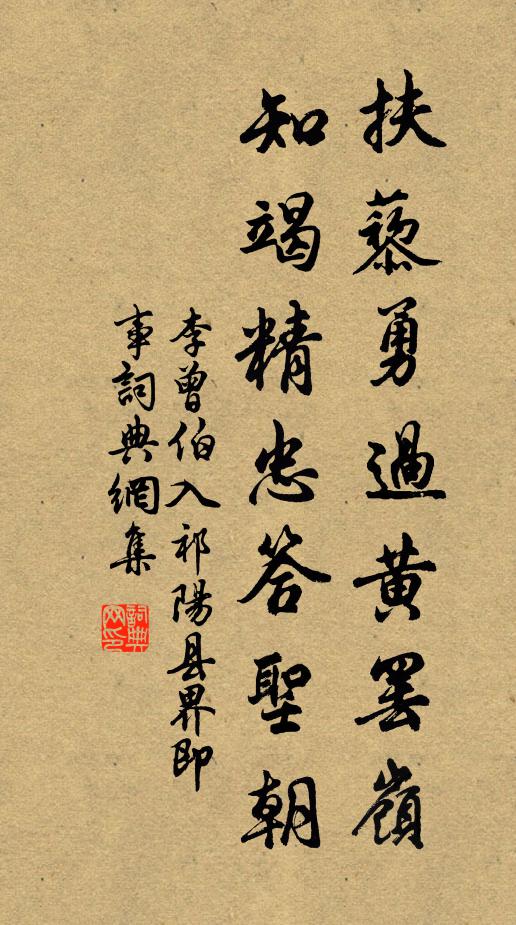 扶藜勇過黃罷嶺
知竭精忠答聖朝
李曾伯入祁陽县界即
事詞典網集
詞典
网印